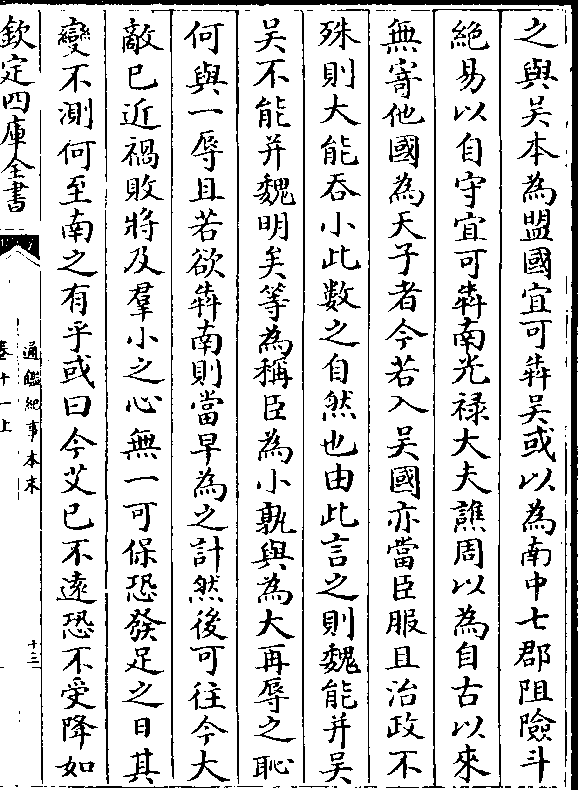 之與吴本為盟國宜可犇吴或以為南中七郡阻險斗
絶易以自守宜可犇南光禄大夫譙周以為自古以來
無寄他國為天子者今若入吴國亦當臣服且治政不
殊則大能吞小此數之自然也由此言之則魏能并吴
吴不能并魏明矣等為稱臣為小孰與為大再辱之恥
何與一辱且若欲犇南則當早為之計然後可往今大
敵已近禍敗將及羣小之心無一可保恐發足之日其
變不測何至南之有乎或曰今艾已不逺恐不受降如
欽定四庫全書
通鑑紀事本末
卷十一上
十三